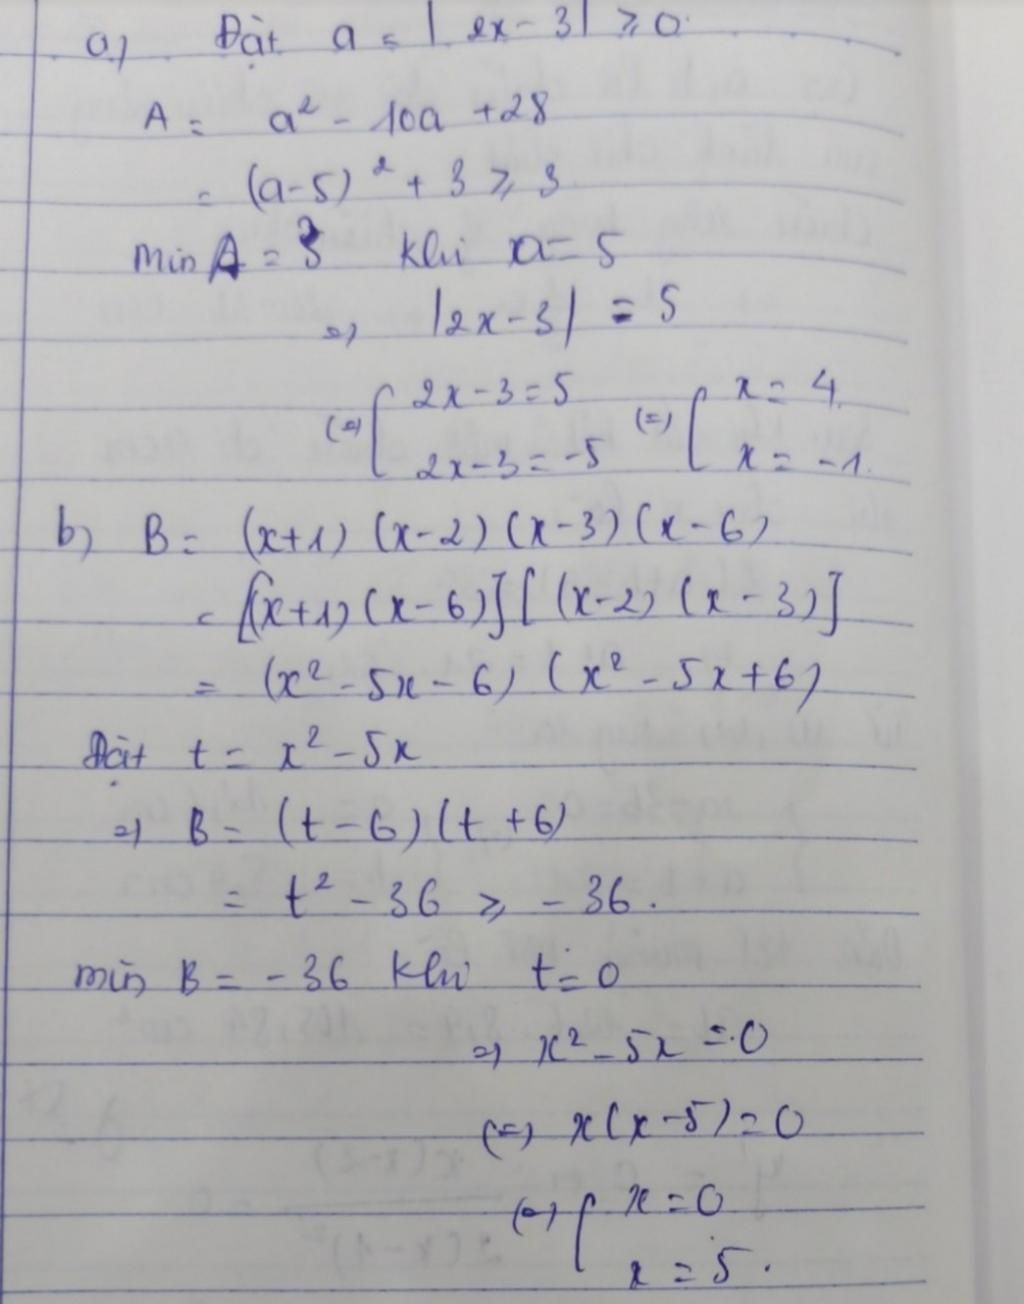 a) Đặt a = |2x - 3| ⩾ 0.
A = a² - 10a + 28
= (a-5)² + 3 ⩾ 3
min A = 3 khi a = 5
=> |2x - 3| = 5
(=) [ 2x - 3 = 5 (=) [ x = 4.
2x - 3 = -5 x = -1.
b) B = (x+1) (x-2) (x-3) (x-6)
= [(x+1) (x-6)] [(x-2) (x-3)]
= (x² - 5x - 6) (x² - 5x + 6)
Đặt t = x² - 5x
=> B = (t - 6) (t + 6)
= t² - 36 ⩾ -36.
min B = -36 khi t = 0
=> x² - 5x = 0
(=) x(x-5) = 0
(=) [ x = 0
x = 5.